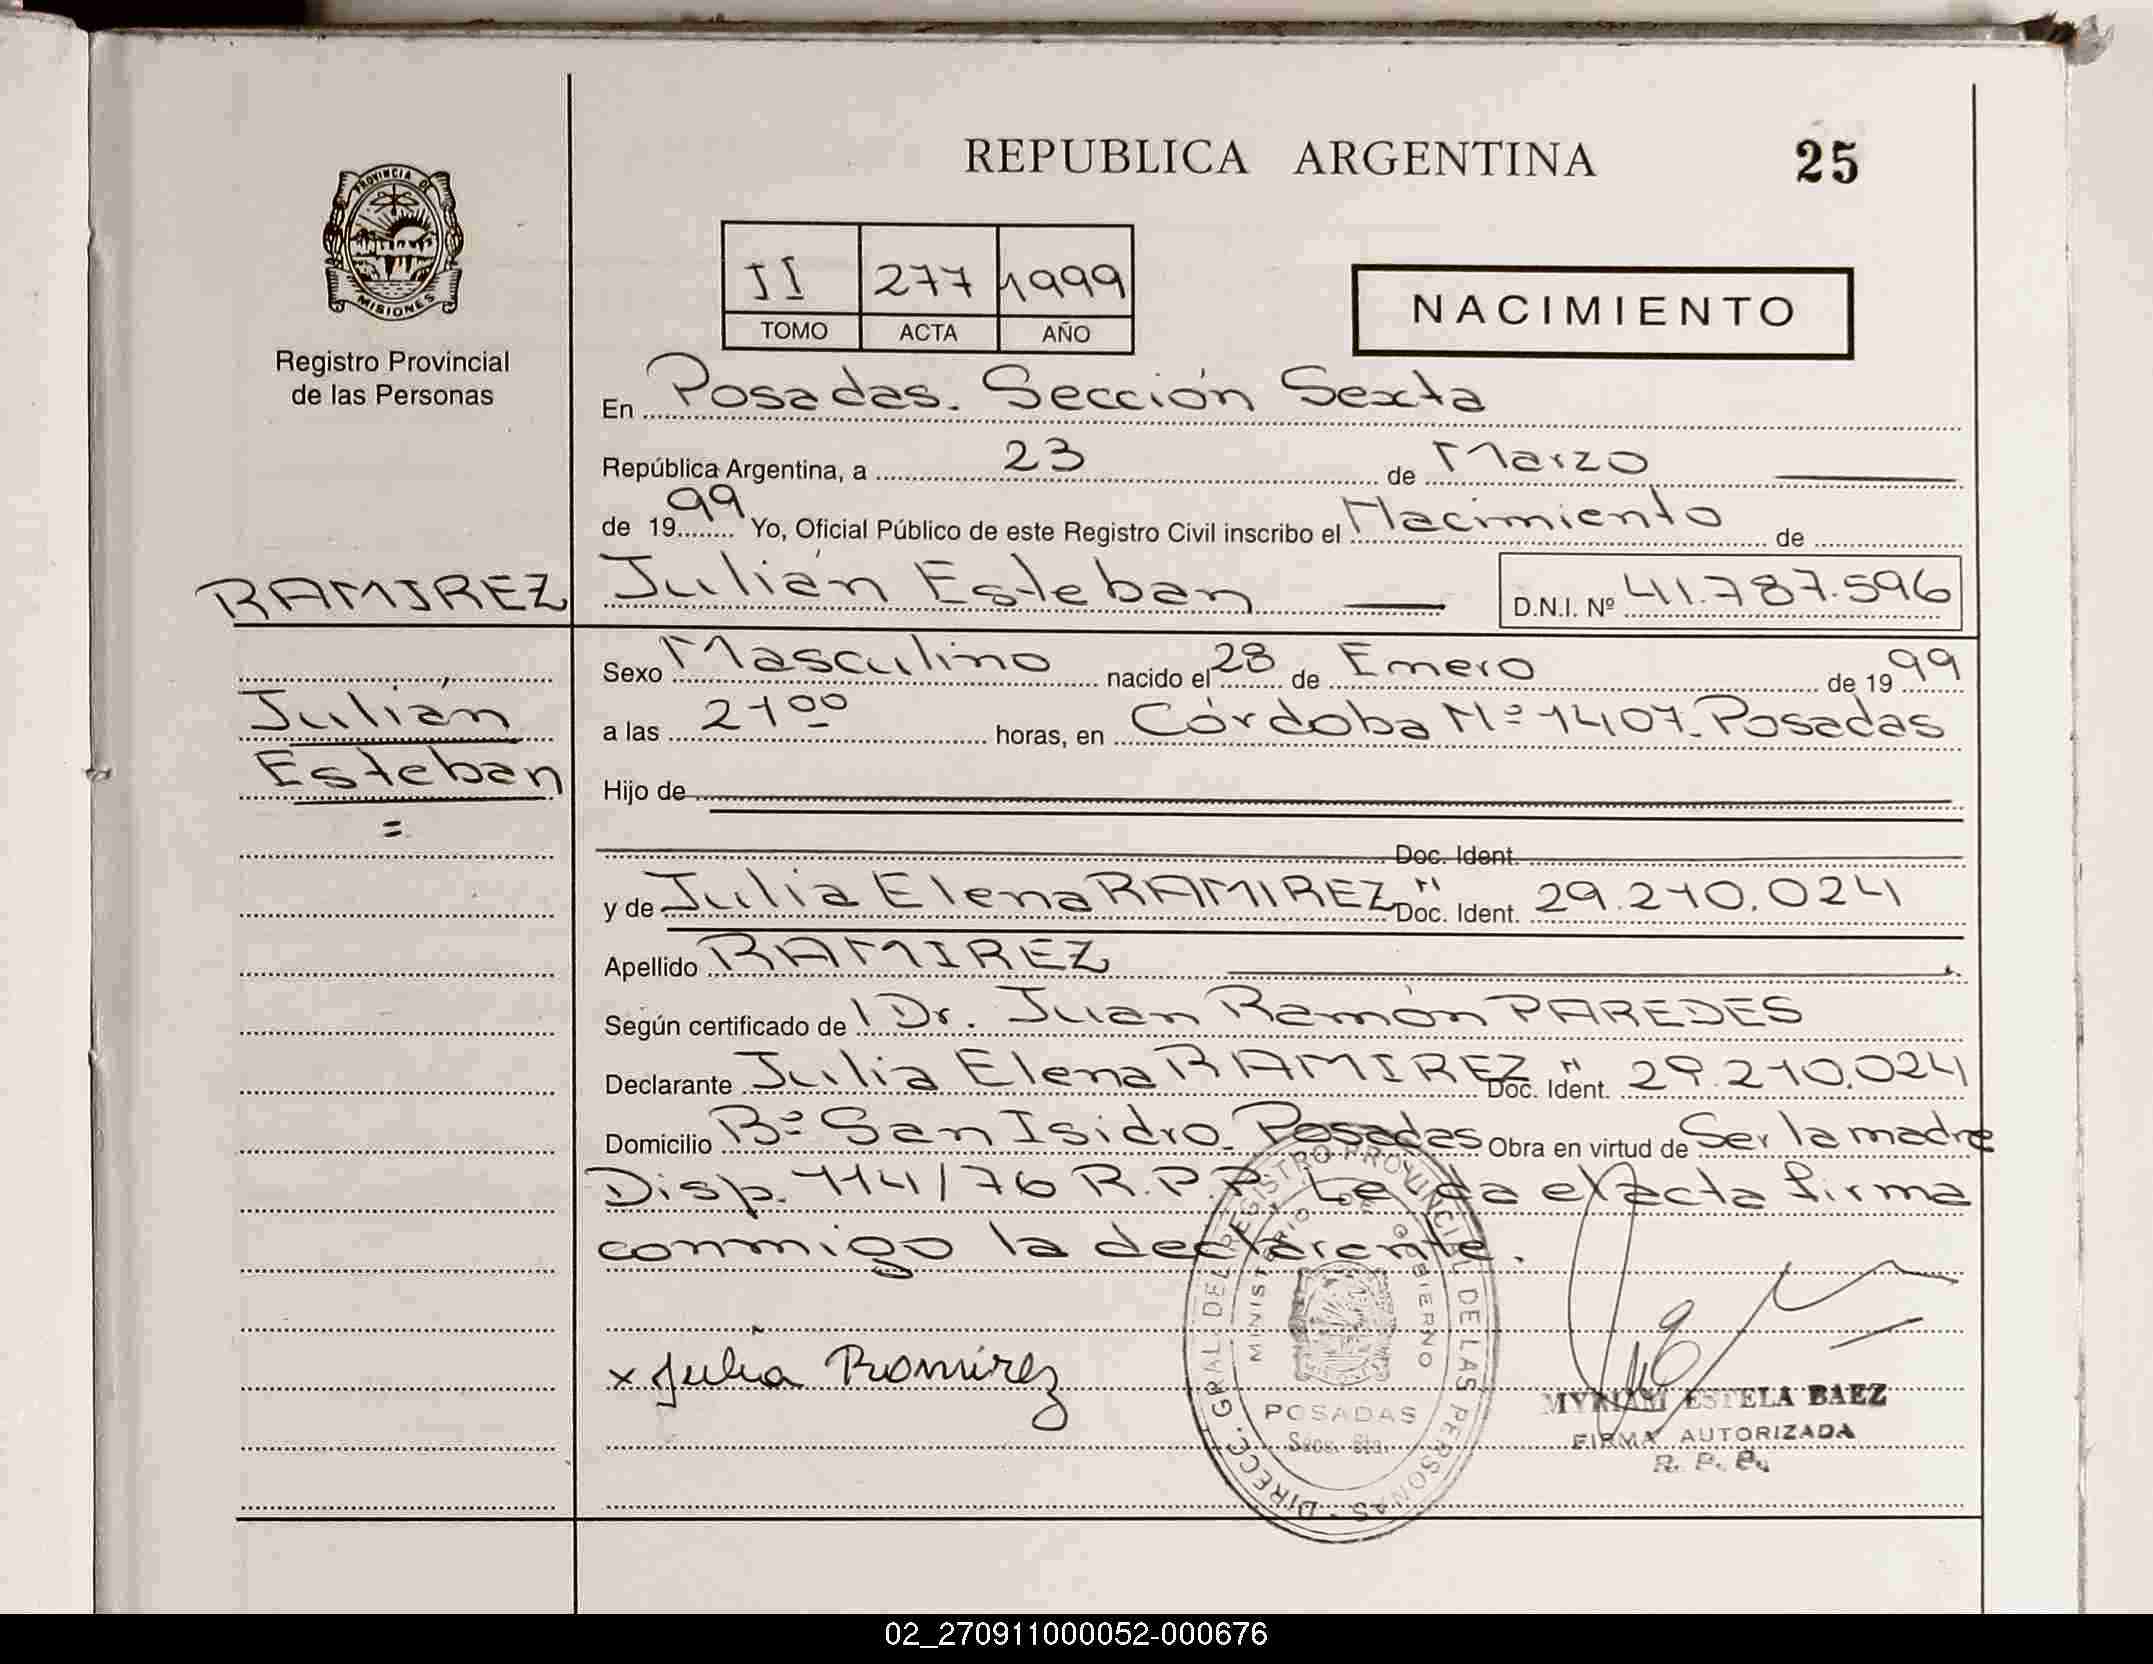 REPUBLICA ARGENTINA
25
PROVINCIA DE
MISIONES
Registro Provincial
de las Personas
II 277 1999
TOMO ACTA AÑO
NACIMIENTO
En Posadas. Sección Sexta
República Argentina, a 23 de Marzo
de 1999 Yo, Oficial Público de este Registro Civil inscribo el Nacimiento de
RAMIREZ
Julián
Esteban
=
Julián Esteban D.N.I. Nº 41.787.596
Sexo Masculino nacido el 28 de Enero de 1999
a las 21 00 horas, en Córdoba Nº 1407. Posadas
Hijo de
Doc. Ident.
y de Julia Elena RAMIREZ Doc. Ident. 29.210.024
Apellido RAMIREZ
Según certificado de Dr. Juan Ramón PAREDES
Declarante Julia Elena RAMIREZ Doc. Ident. 29.210.024
Domicilio Bº San Isidro. Posadas Obra en virtud de Ser la madre
Disp. 114/76 R.P.P. Leída el acta firma
conmigo la declarante.
x Julia Ramirez
DIRECC. GRAL. DEL REGISTRO PROVINCIAL DE LAS PERSONAS
MINISTERIO DE GOBIERNO
POSADAS
Secc. 6ta.
MYRIAM ESTELA BAEZ
FIRMA AUTORIZADA
R. P. P.
02_270911000052-000676